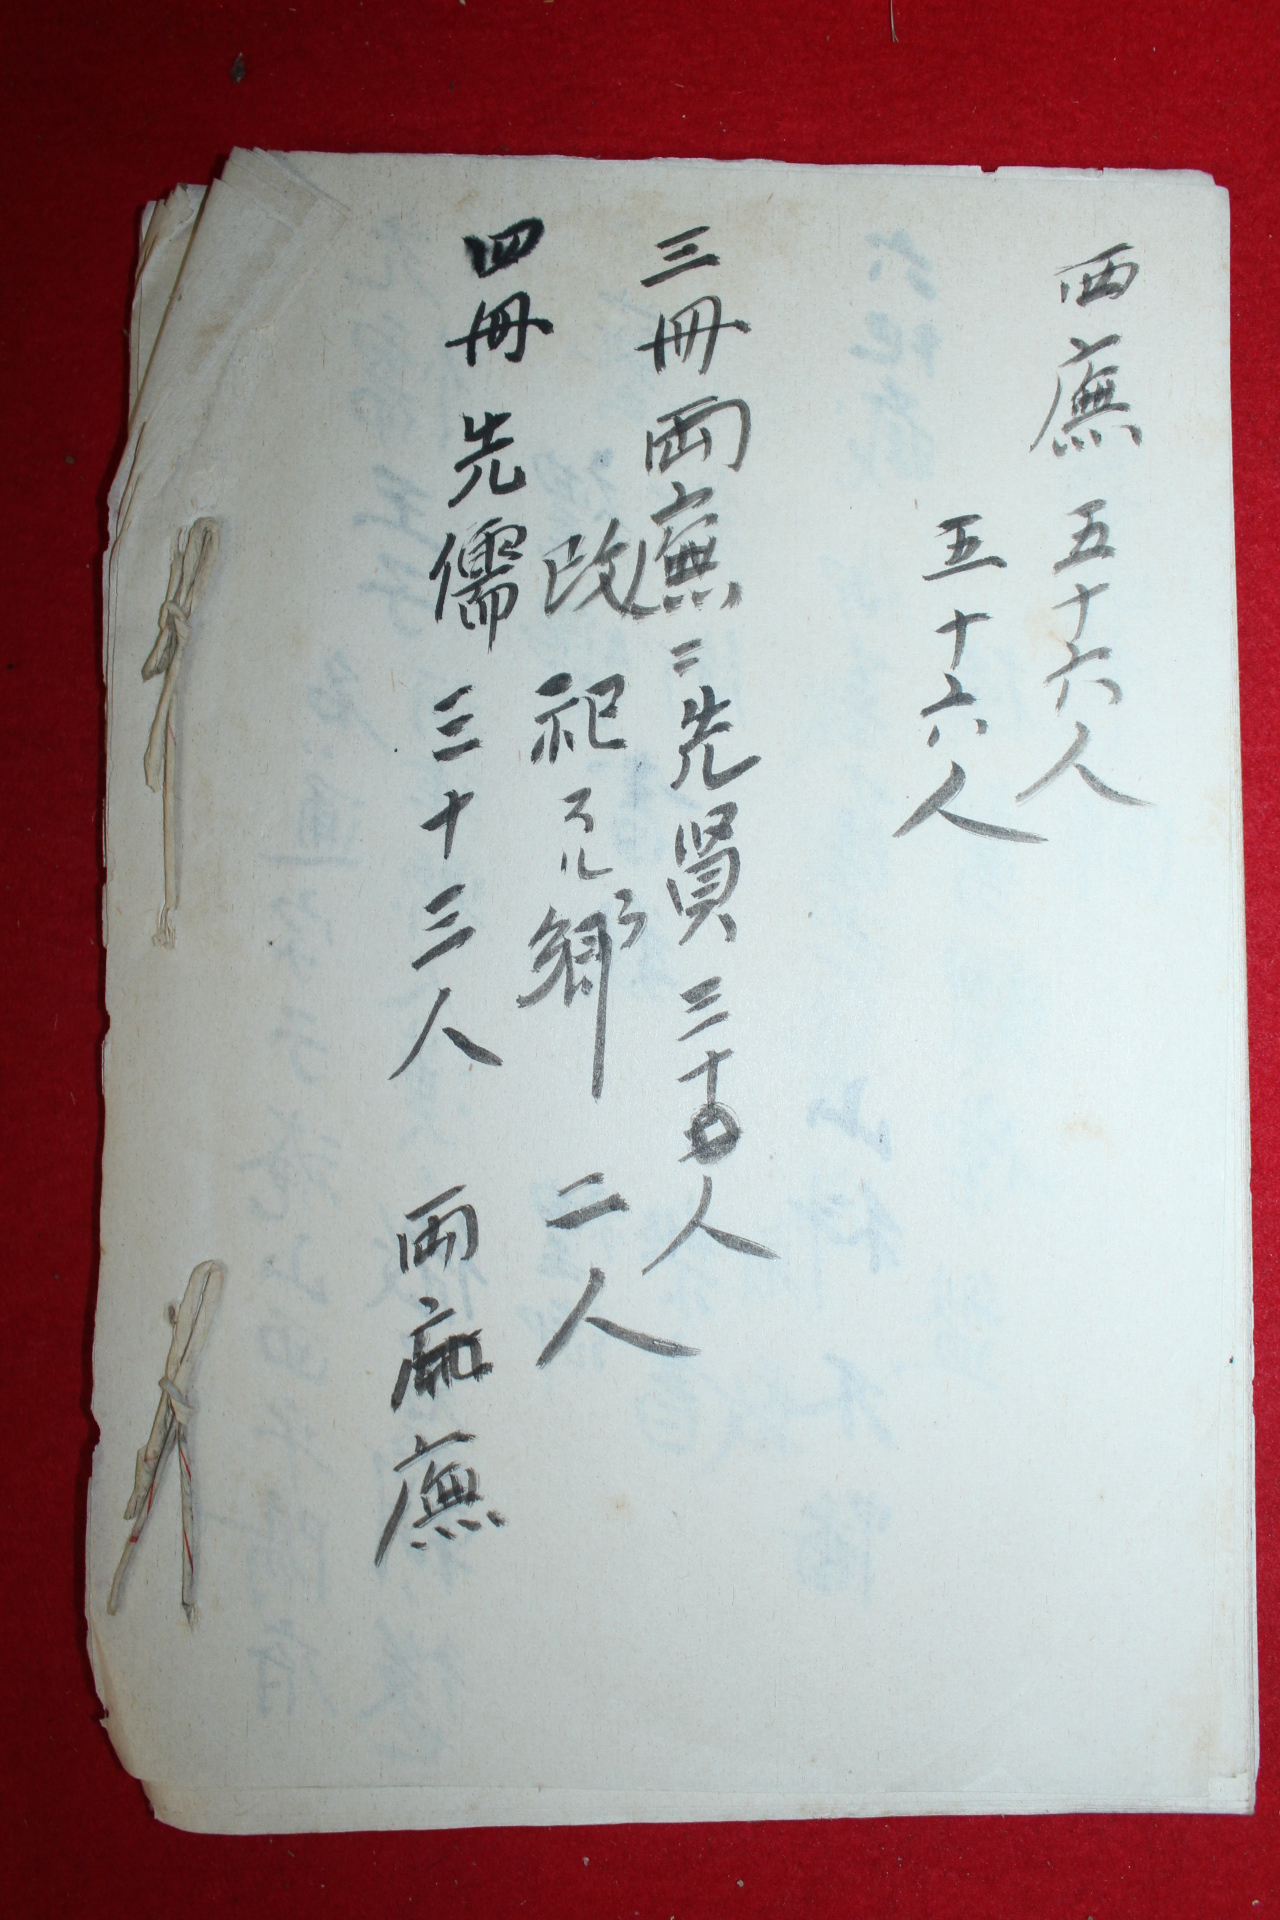 西廡 五十六人
五十六人
三冊 両廡 先賢 三十人
改祀 鄉 二人
四冊 先儒 三十三人 両廡